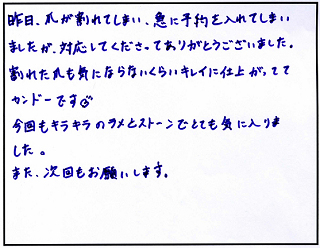 昨日、爪が割れてしまい、急に予約を入れてしまい
ましたが、対応してくださってありがとうございました。
割れた爪も気にならないくらいキレイに仕上がってて
カンドーです
今回もキラキラのラメとストーンでとても気に入りま
した。
また、次回もお願いします。